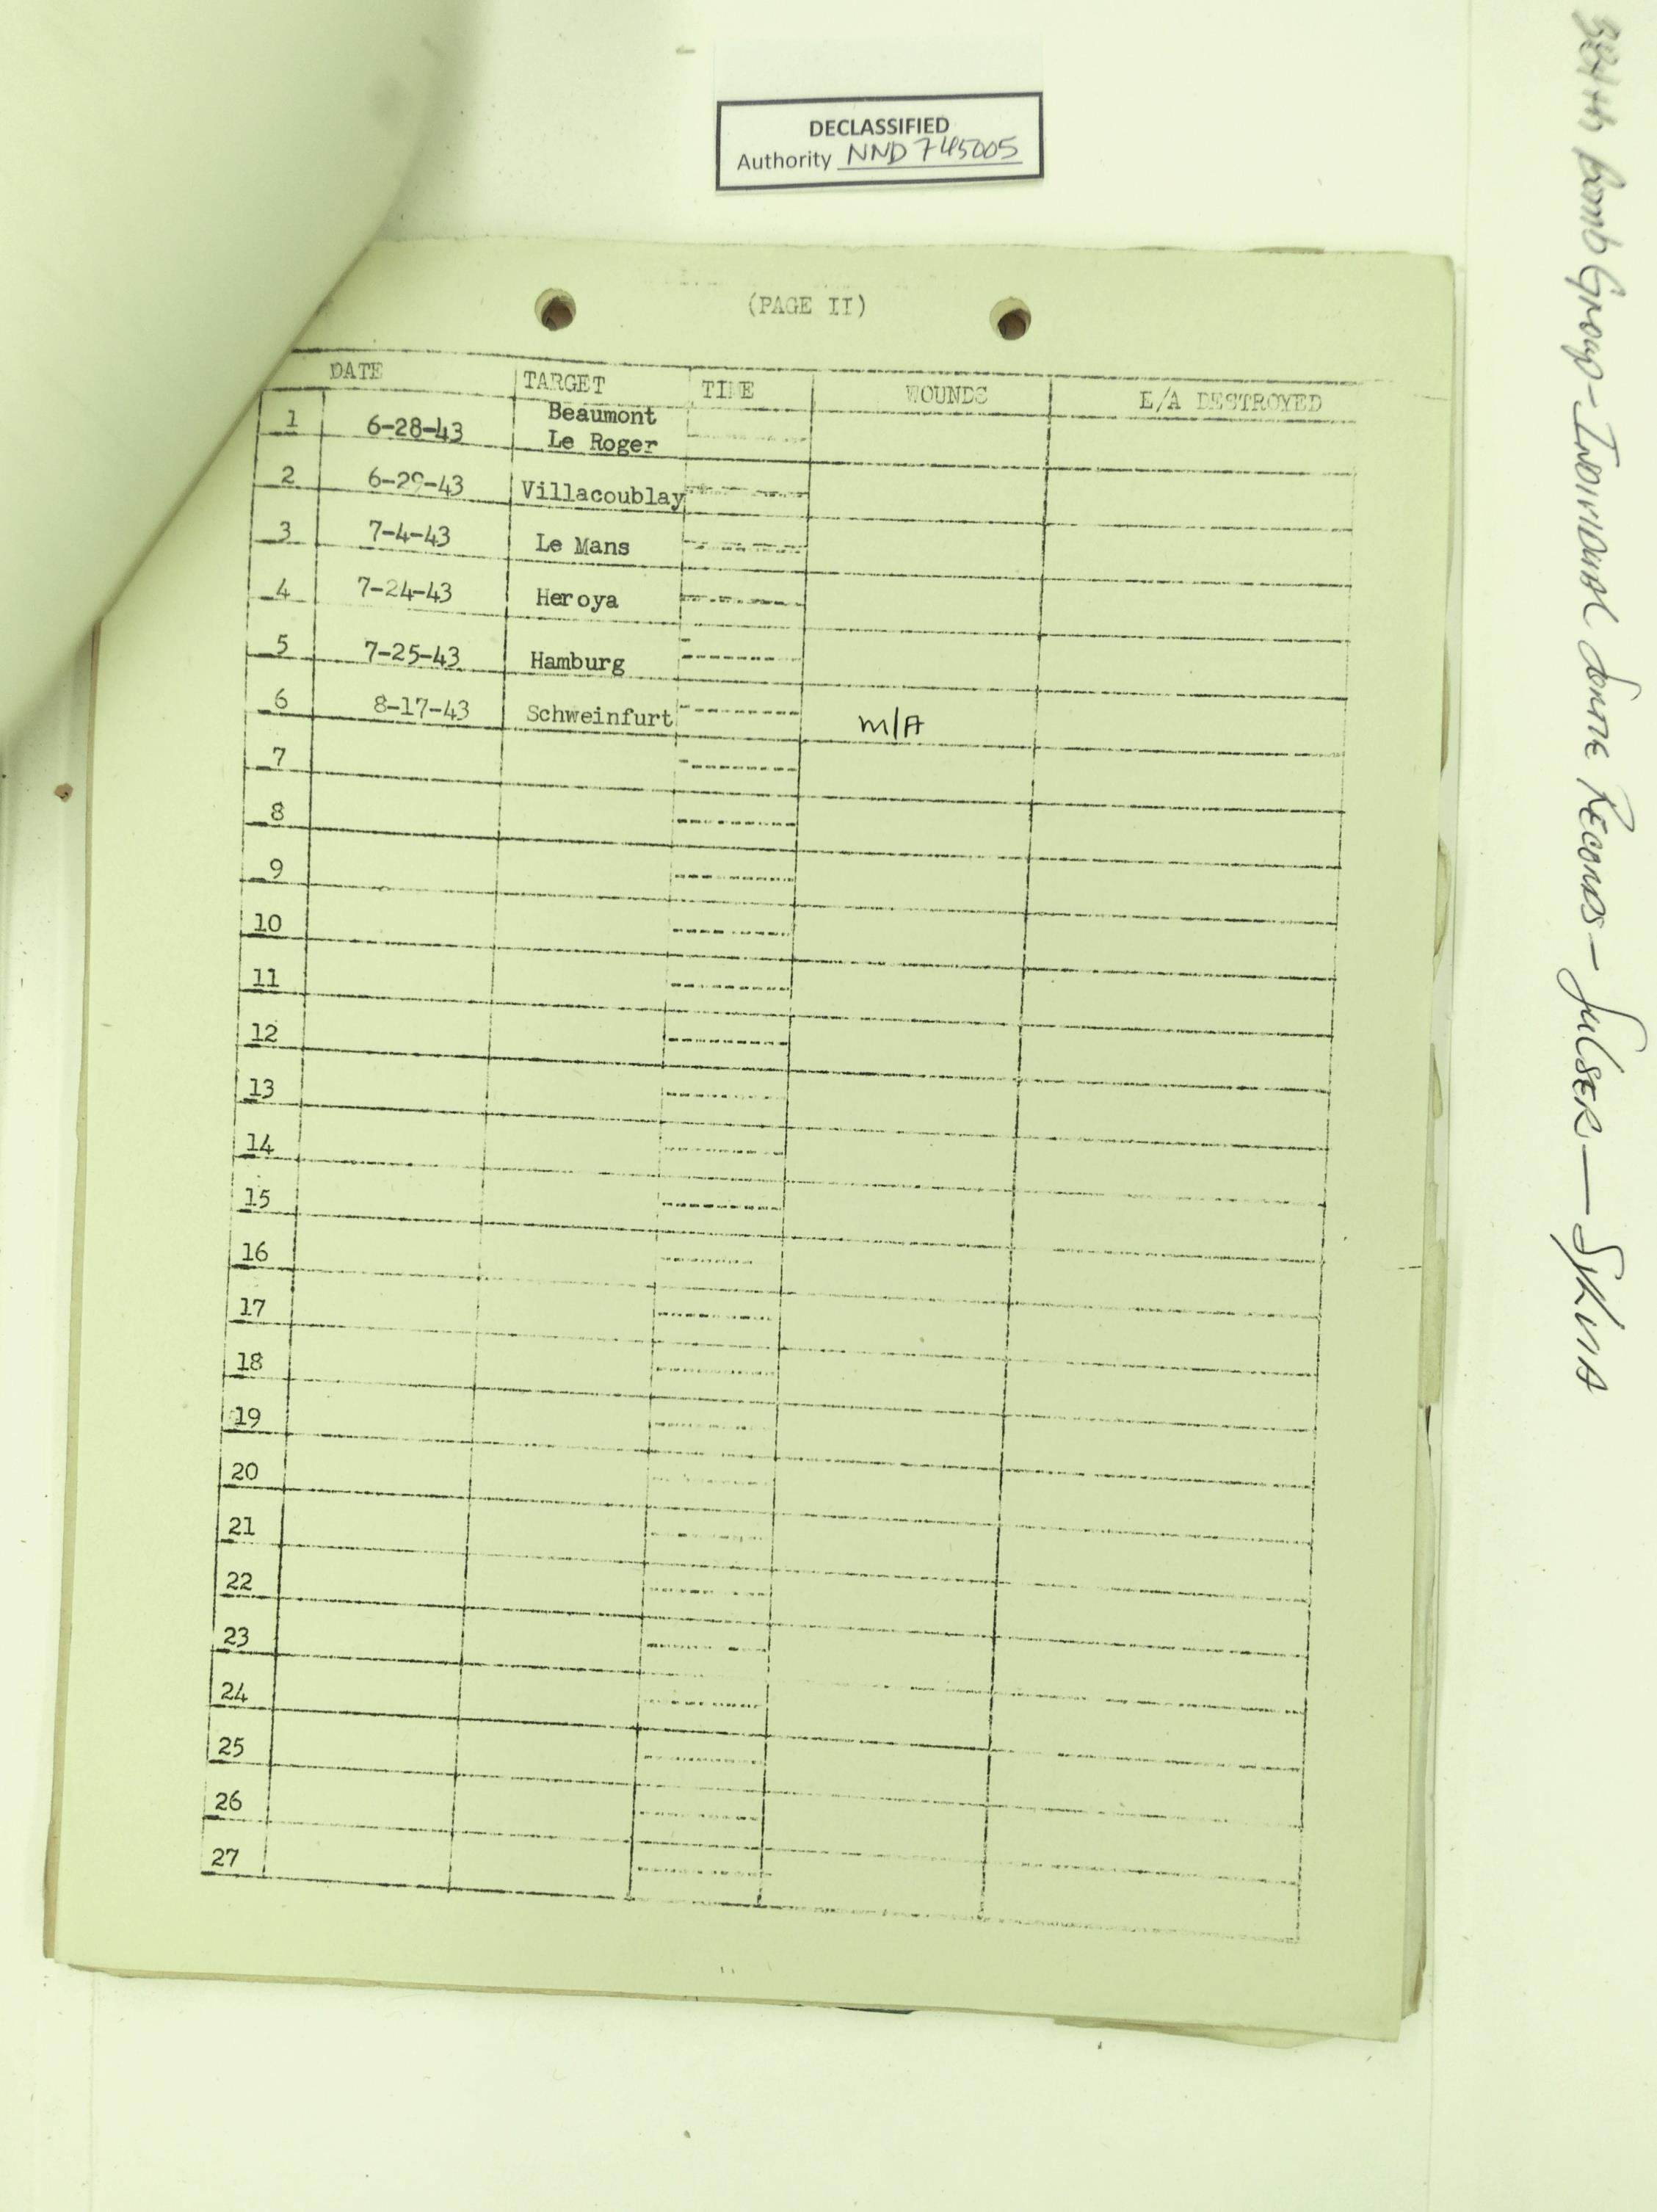 DECLASSIFIED
Authority NND 745005
(PAGE II)
DATE TARGET TIME WOUNDS E/A DESTROYED
1 6-28-43 Beaumont
Le Roger
2 6-29-43 Villacoublay
3 7-4-43 Le Mans
4 7-24-43 Heroya
5 7-25-43 Hamburg
6 8-17-43 Schweinfurt M/A
7
8
9
10
11
12
13
14
15
16
17
18
19
20
21
22
23
24
25
26
27
384th Bomb Group - Individual Sortie Records - Sulser - Sylvia